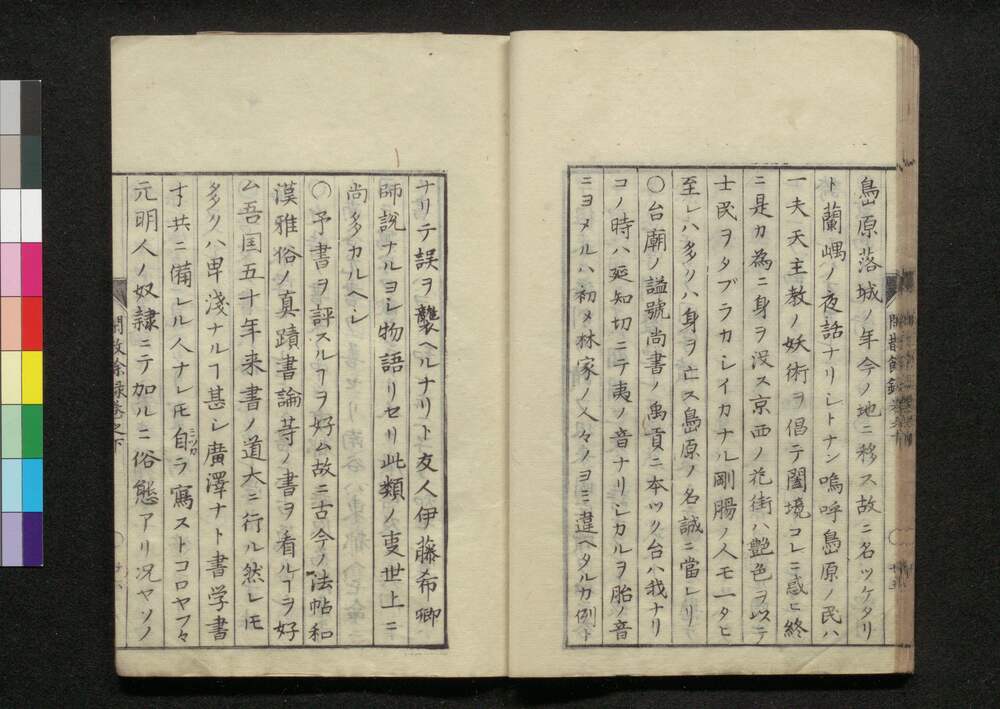 島原落城ノ年今ノ地ニ移ス故ニ名ツケタリ
ト蘭嵎ノ夜話ナリシトナン嗚呼島原ノ民ハ
一夫天主教ノ妖術ヲ倡テ闔境コレニ惑ヒ終
ニ是カ為ニ身ヲ没ス京西ノ花街ハ艶色ヲ以テ
士民ヲタブラカシイカナル剛腸ノ人モ一タヒ
至レハ多クハ身ヲ亡ス島原ノ名誠ニ當レリ
〇台廟ノ謚號尚書ノ禹貢ニ本ツク台ハ我ナリ
コノ時ハ延知切ニテ夷ノ音ナリシカルヲ胎ノ音
ニヨメルハ初メ林家ノ人々ノヨミ違ヘタルカ例ト
ナリテ誤ヲ襲ヘルナリト友人伊藤希卿
師説ナルヨシ物語リセリ此類ノ叓世上ニ
尚多カルヘシ
〇予書ヲ評スルヿヲ好ム故ニ古今ノ法帖和
漢雅俗ノ真蹟書論等ノ書ヲ看ルヿヲ好
ム吾国五十年来書ノ道大ニ行ル然レ𪜈
多クハ卑淺ナルヿ甚シ廣澤ナト書学書
才共ニ備レル人ナレ𪜈自ラ寫ストコロヤヽ々
元明人ノ奴隷ニテ加ルニ俗態アリ况ヤソノ
間散餘録巻之下